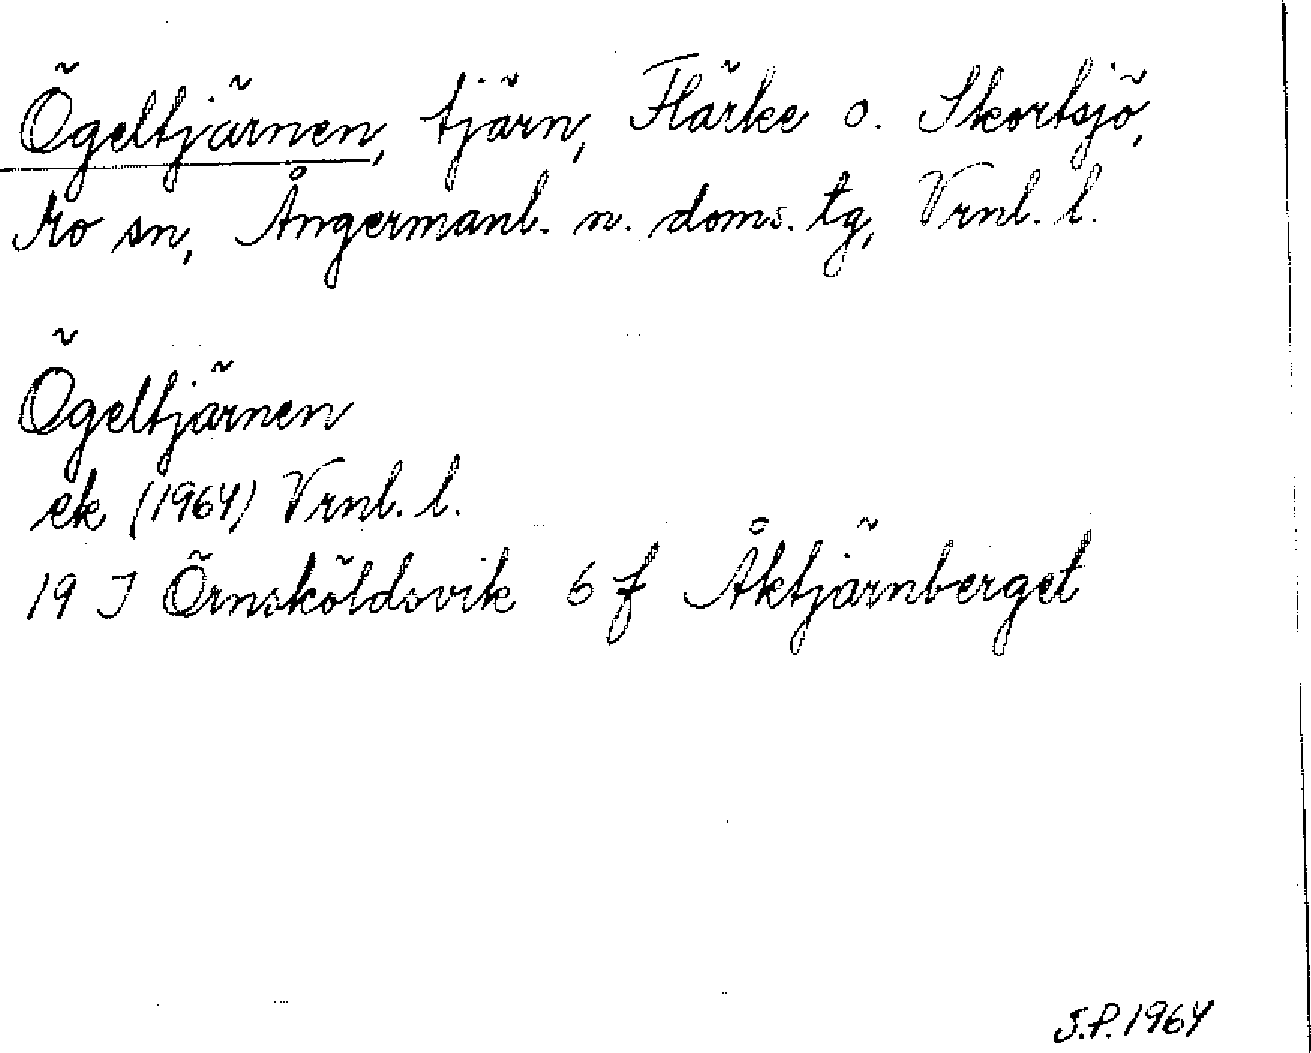 Ögeltjärnen, tjärn, Flärke o. Skortsjö,
Mo sn, Ångermanl. n. doms. tg, Vrnl. l.
Ögeltjärnen
ek (1964) Vrnl. l.
19 J Örnsköldsvik 6 f Åktjärnberget
S.P. 1964